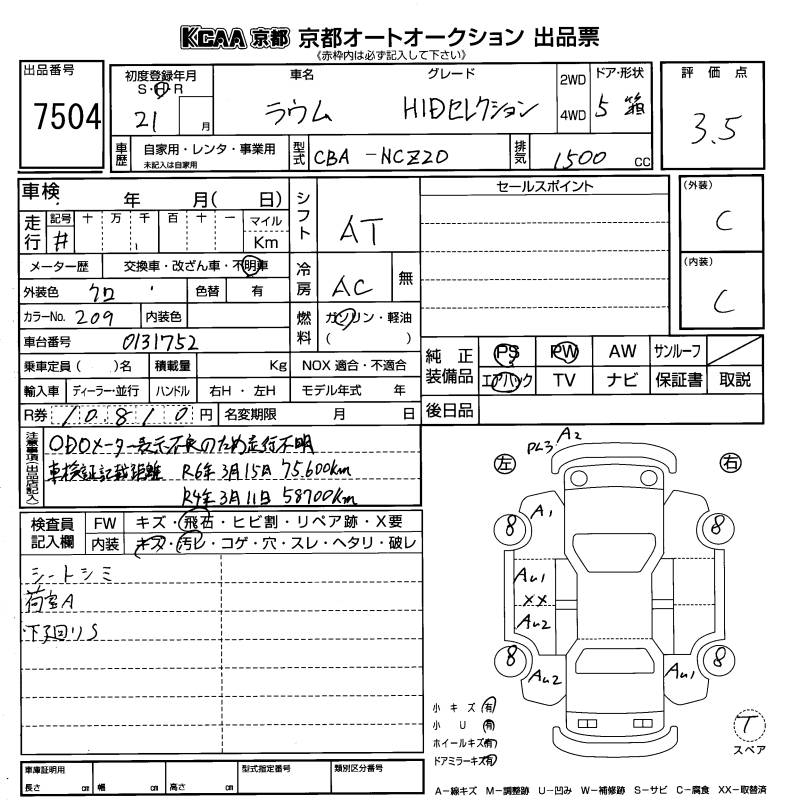 KCAA 京都 京都オートオークション 出品票
《赤枠内は必ず記入して下さい》
出品番号
7504
初度登録年月
S・H・R
21 月
車名
ラウム
グレード
HIDセレクション
2WD
4WD
ドア・形状
5 箱
評価点
3.5
車歴
自家用・レンタ・事業用
未記入は自家用
型式
CBA-NCZ20
排気
1500 CC
車検 年 月( 日)
走行
記号 十 万 千 百 十 一 マイル
# Km
メーター歴 交換車・改ざん車・不明車
外装色 クロ 色替 有
カラーNo. 209 内装色
車台番号 0131752
乗車定員( )名 積載量 Kg
輸入車 ディーラー・並行 ハンドル 右H・左H
R券 10,810 円 名変期限 月 日
シフト
AT
冷房
AC 無
燃料
ガソリン・軽油
( )
NOX 適合・不適合
モデル年式 年
セールスポイント
(外装)
C
(内装)
C
純正装備品
PS PW AW サンルーフ
エアバック TV ナビ 保証書 取説
後日品
注意事項(出品店記入)
ODOメーター表示不良のため走行不明
車検証記載距離 R6年3月15日 75,600km
R4年3月11日 58700km
検査員記入欄
FW キズ・飛石・ヒビ割・リペア跡・X要
内装 キズ・汚レ・コゲ・穴・スレ・ヘタリ・破レ
シートシミ
荷室A
下回りS
左
右
PL3 A2
A1
8
8
AU1
XX
AU2
8
8
AU2
AU1
小キズ(有)
小U(有)
ホイールキズ(有)
ドアミラーキズ(有)
T
スペア
車庫証明用
長さ cm 幅 cm 高さ cm
型式指定番号
類別区分番号
A−線キズ M−調整跡 U−凹み W−補修跡 S−サビ C−腐食 XX−取替済